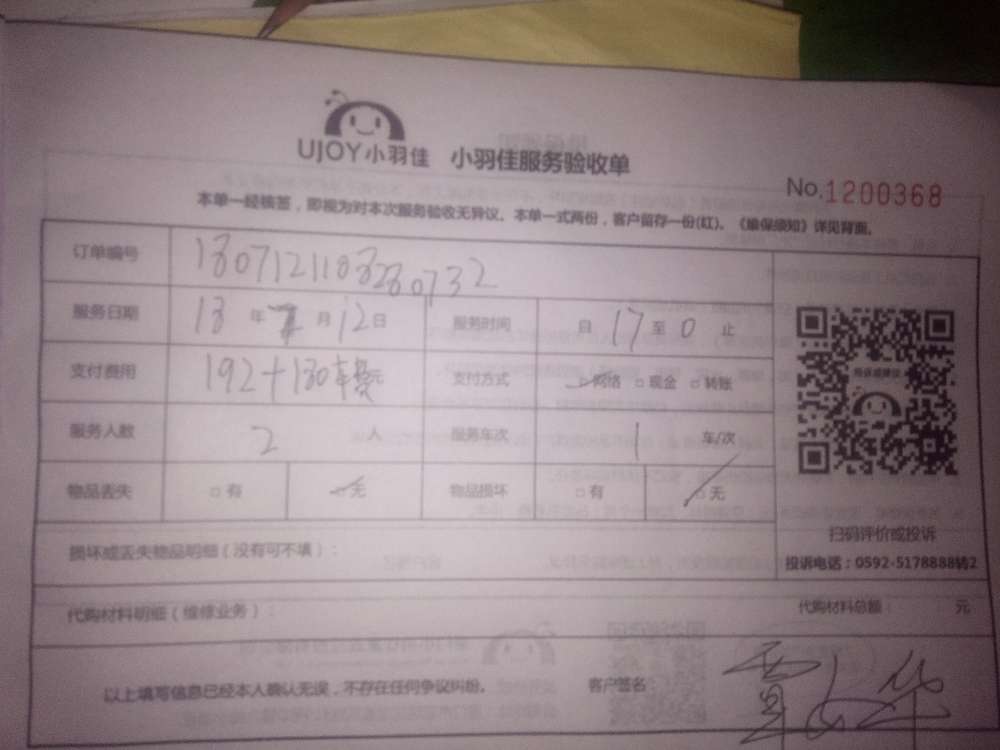 UJOY小羽佳 小羽佳服务验收单
No.1200368
本单一经核签，即视为对本次服务验收无异议。本单一式两份，客户留存一份(红)。《维保须知》详见背面。
订单编号
服务日期 18 年 7 月 12 日 服务时间 自 17 至 0 止
支付费用 192+130车费元 支付方式 □网络 □现金 □转账
服务人数 2 人 服务车次 1 车/次
物品丢失 □有 □无 物品损坏 □有 □无
扫码评价或投诉
投诉电话：0592-5178888转2
损坏或丢失物品明细（没有可不填）：
代购材料明细（维修业务）： 代购材料总额： 元
以上填写信息已经本人确认无误，不存在任何争议纠纷。 客户签名